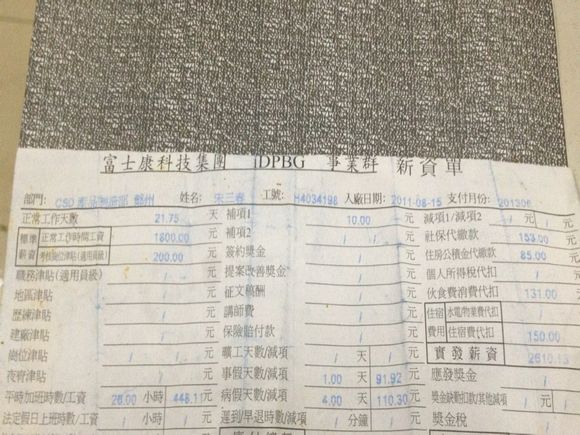 富士康科技集團 iDPBG 事業群 薪資單
部門: CSD 產品製造部 鄭州 姓名: 宋三春 工號: H4034198 入廠日期: 2011-08-15 支付月份: 201306
正常工作天數 21.75 天 補項1 10.00 元 減項1/減項2 / 元
標準薪資 正常工作時間工資 1800.00 元 補項2 / 元 社保代繳款 153.00 元
200.00 元 簽約獎金 / 元 住房公積金代繳款 85.00 元
職務津貼(適用員級) / 元 提案改善獎金 / 元 個人所得稅代扣 / 元
地區津貼 / 元 征文稿酬 / 元 伙食費消費代扣 131.00 元
歷練津貼 / 元 講師費 / 元 住宿費用 水電/物業費代扣 / 元
建廠津貼 / 元 保險賠付款 / 元 住宿費代扣 150.00 元
崗位津貼 / 元 曠工天數/減項 / 天 / 元 實發薪資 2610.13 元
夜宵津貼 / 元 事假天數/減項 1.00 天 91.92 元 應發獎金 / 元
平時加班時數/工資 26.00 小時 448.11 元 病假天數/減項 4.00 天 110.30 元 獎金缺勤扣款/其他減項 / 元
法定假日上班時數/工資 / 小時 / 元 遲到/早退時數/減項 / 分鐘 / 元 獎金稅 / 元